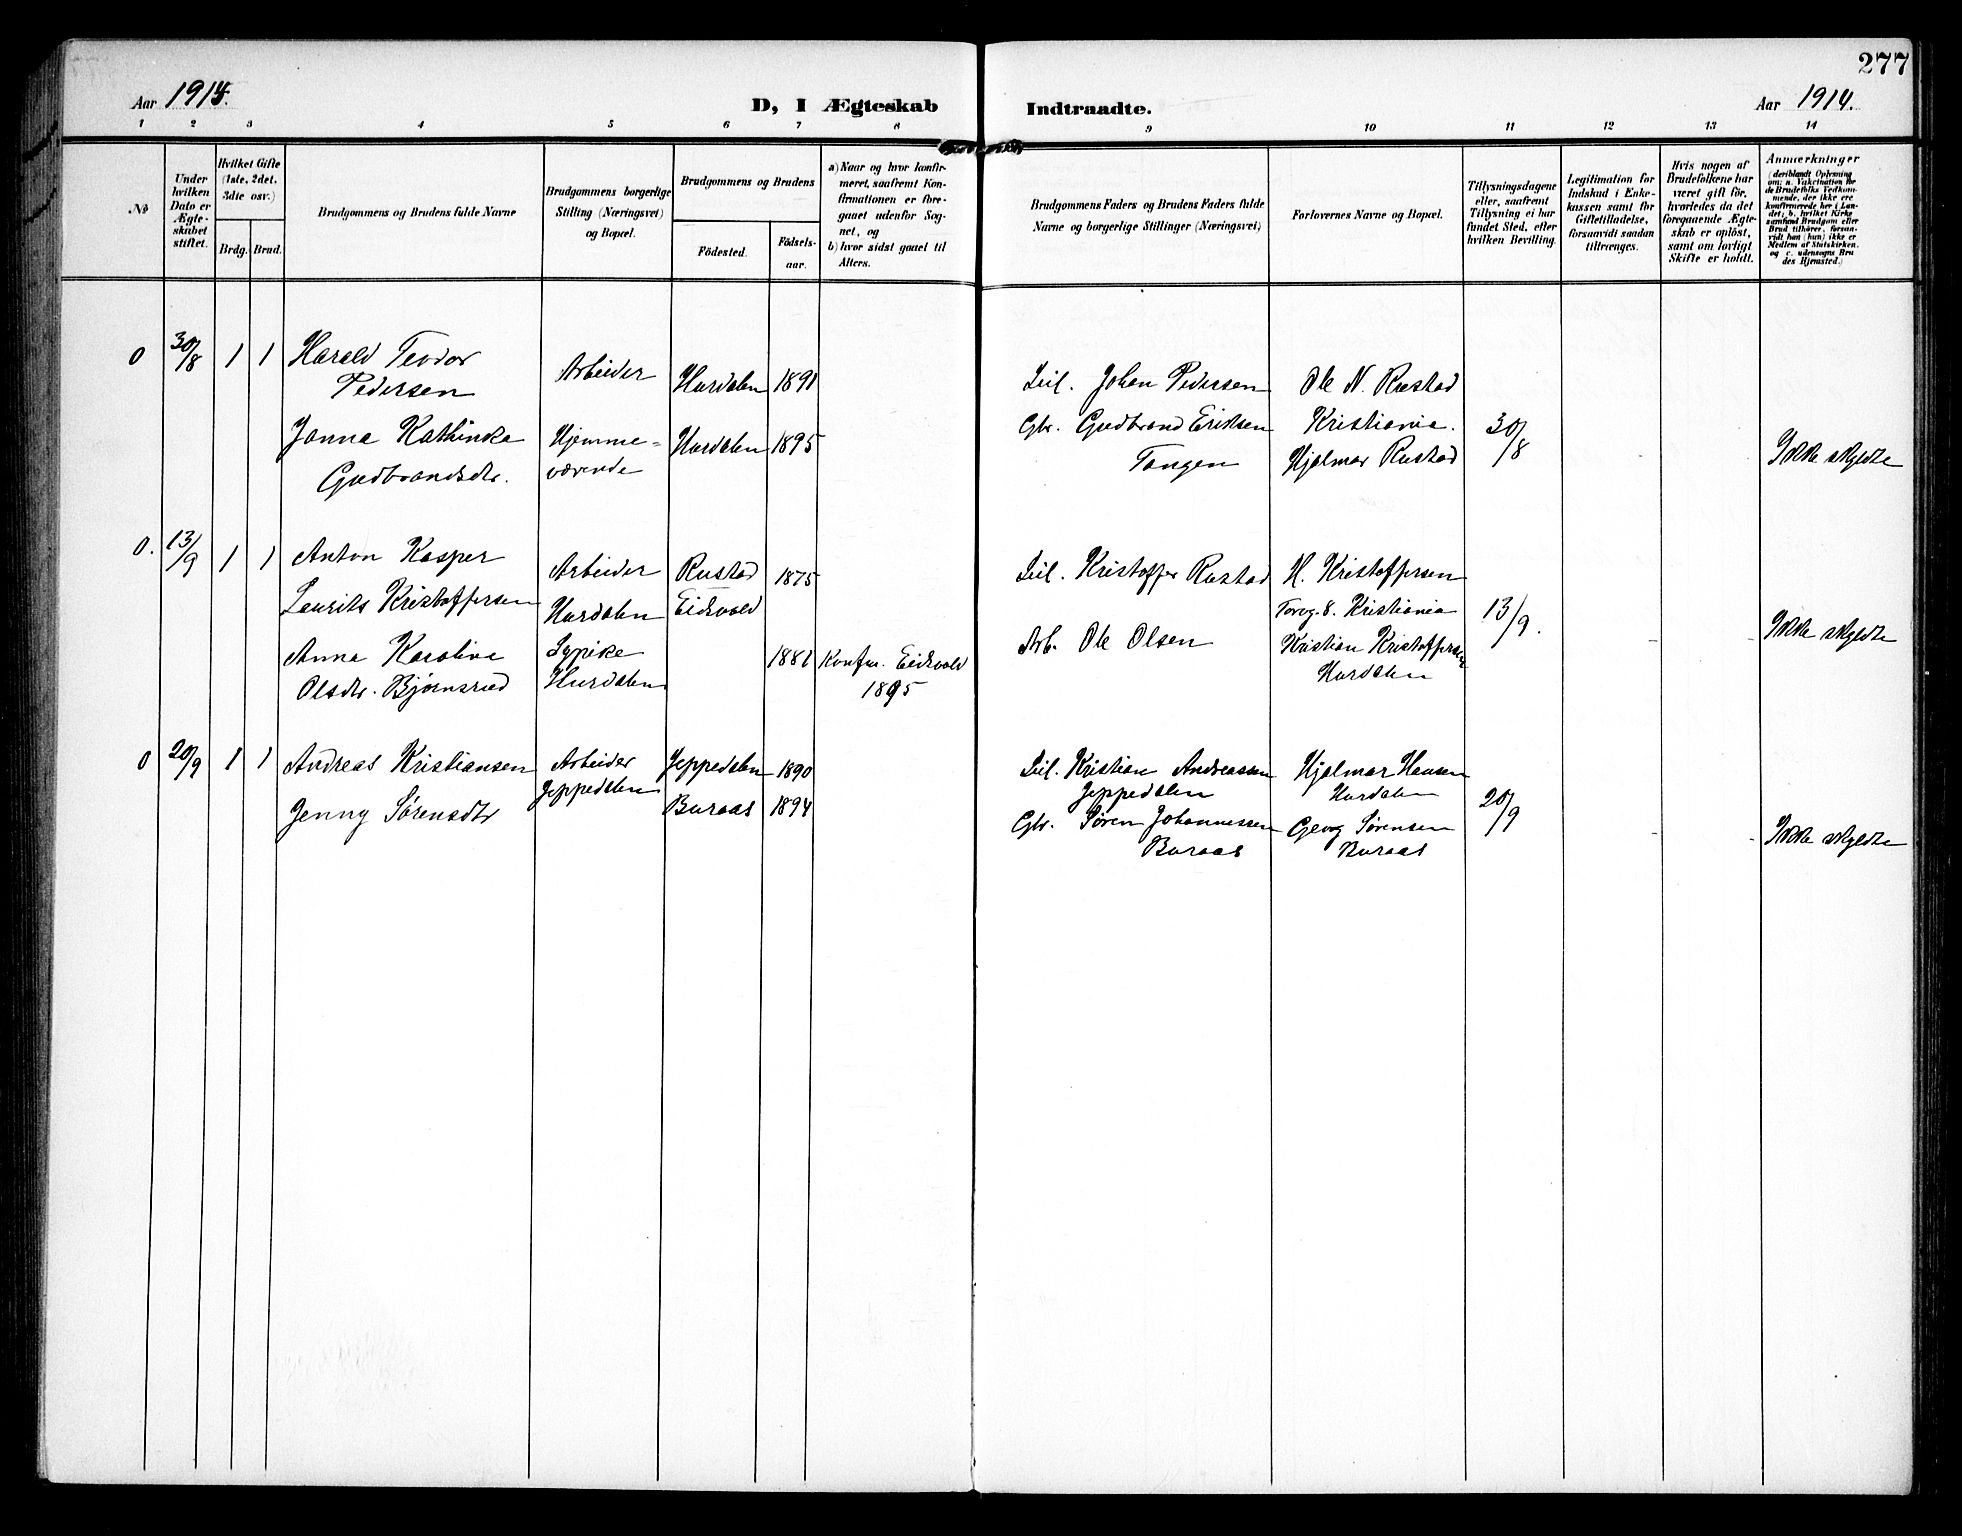 277
Aar 1914.
D, I Ægteskab
Indtraadte.
Aar 1914.
1 2 3 4 5 6 7 8
9 10 11 12 13 14
№
Under
hvilken
Dato er
Ægte-
skabet
stiftet.
Hvilket Gifte
(1ste, 2det,
3die osv.)
Brdg. Brud.
Brudgommens og Brudens fulde Navne
Brudgommens borgerlige
Stilling (Næringsvei)
og Bopæl.
Brudgommens og Brudens
Födested.
Födsels-
aar.
a) Naar og hvor konfir-
meret, saafremt Kon-
firmationen er fore-
gaaet udenfor Sog-
net, og
b) hvor sidst gaaet til
Alters.
Brudgommens Faders og Brudens Faders fulde
Navne og borgerlige Stillinger (Næringsvei)
Forlovernes Navne og Bopæl.
Tillysningsdagene
eller, saafremt
Tillysning ei har
fundet Sted, efter
hvilken Bevilling.
Legitimation for
Indskud i Enke-
kassen samt for
Giftetilladelse,
forsaavidt saadan
tiltrænges.
Hvis nogen af
Brudefolkene har
været gift för,
hvorledes da det
foregaaende Ægte-
skab er oplöst,
samt om lovligt
Skifte er holdt.
Anmerkninger
(deriblandt Oplysning
om: a. Vakcination for
de Brudefolks Vedkom-
mende, der ikke ere
konfirmerede her i Lan-
det; b. hvilket Kirke
samfund Brudgom eller
Brud tilhörer, forsaa-
vidt han (hun) ikke er
Medlem af Statskirken,
og c. udensogns Bru
des Hjemsted.)
0 30/8 1 1 Harald Teodor
Pedersen
Arbeider
Hurdalen 1891
Leil. Johan Pedersen
Ole N. Rustad
Kristiania.
Janna Kathinka
Gudbrandsdtr.
Hjemme-
værende
Hurdalen 1895
Gbr. Gudbrand Eriksen
Tangen
Hjalmar Rustad
30/8
Ikke skyldte
0. 13/9 1 1 Anton Kasper
Laurits Kristoffersen
Arbeider
Hurdalen
Rustad
Eidsvold
1875
Leil. Kristoffer Rustad
H. Kristoffersen
Torvg. 8. Kristiania
13/9.
Anna Karoline
Olsdtr. Bjørnsrud
Sypike
Hurdalen
1881
Konfm. Eidsvold
1895
Arb. Ole Olsen
Kristian Kristoffersen
Hurdalen
-
-
Ikke skyldte
0 20/9 1 1 Andreas Kristiansen
Arbeider
Jeppedalen
Jeppedalen 1890
Leil. Kristian Andreassen
Jeppedalen
Hjalmar Hansen
Hurdalen
Jenny Sørensdtr
Buraas 1894
Gbr. Søren Johannessen
Buraas
Georg Sørensen
Buraas
20/9
-
-
Ikke skyldte